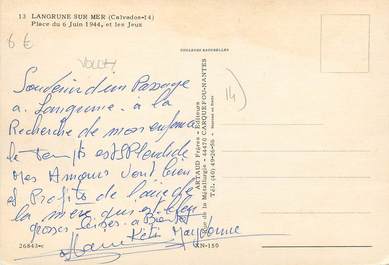 13 LANGRUNE SUR MER (Calvados-14)
Place du 6 Juin 1944, et les Jeux
6 €
COULEURS NATURELLES
14)
Souvenir d'un Passage
a Langrune à la
Recherche de mon enfance
le temps est splendide
mes Amours Vont bien
et Profite de l'air de
la mère qui est bleu
grosses bises a Bientôt
26843-c
ARTAUD Frères - Editeurs
rue de la Métallurgie - 44470 CARQUEFOU-NANTES
Tél. (40) 49-26-56
KN-150